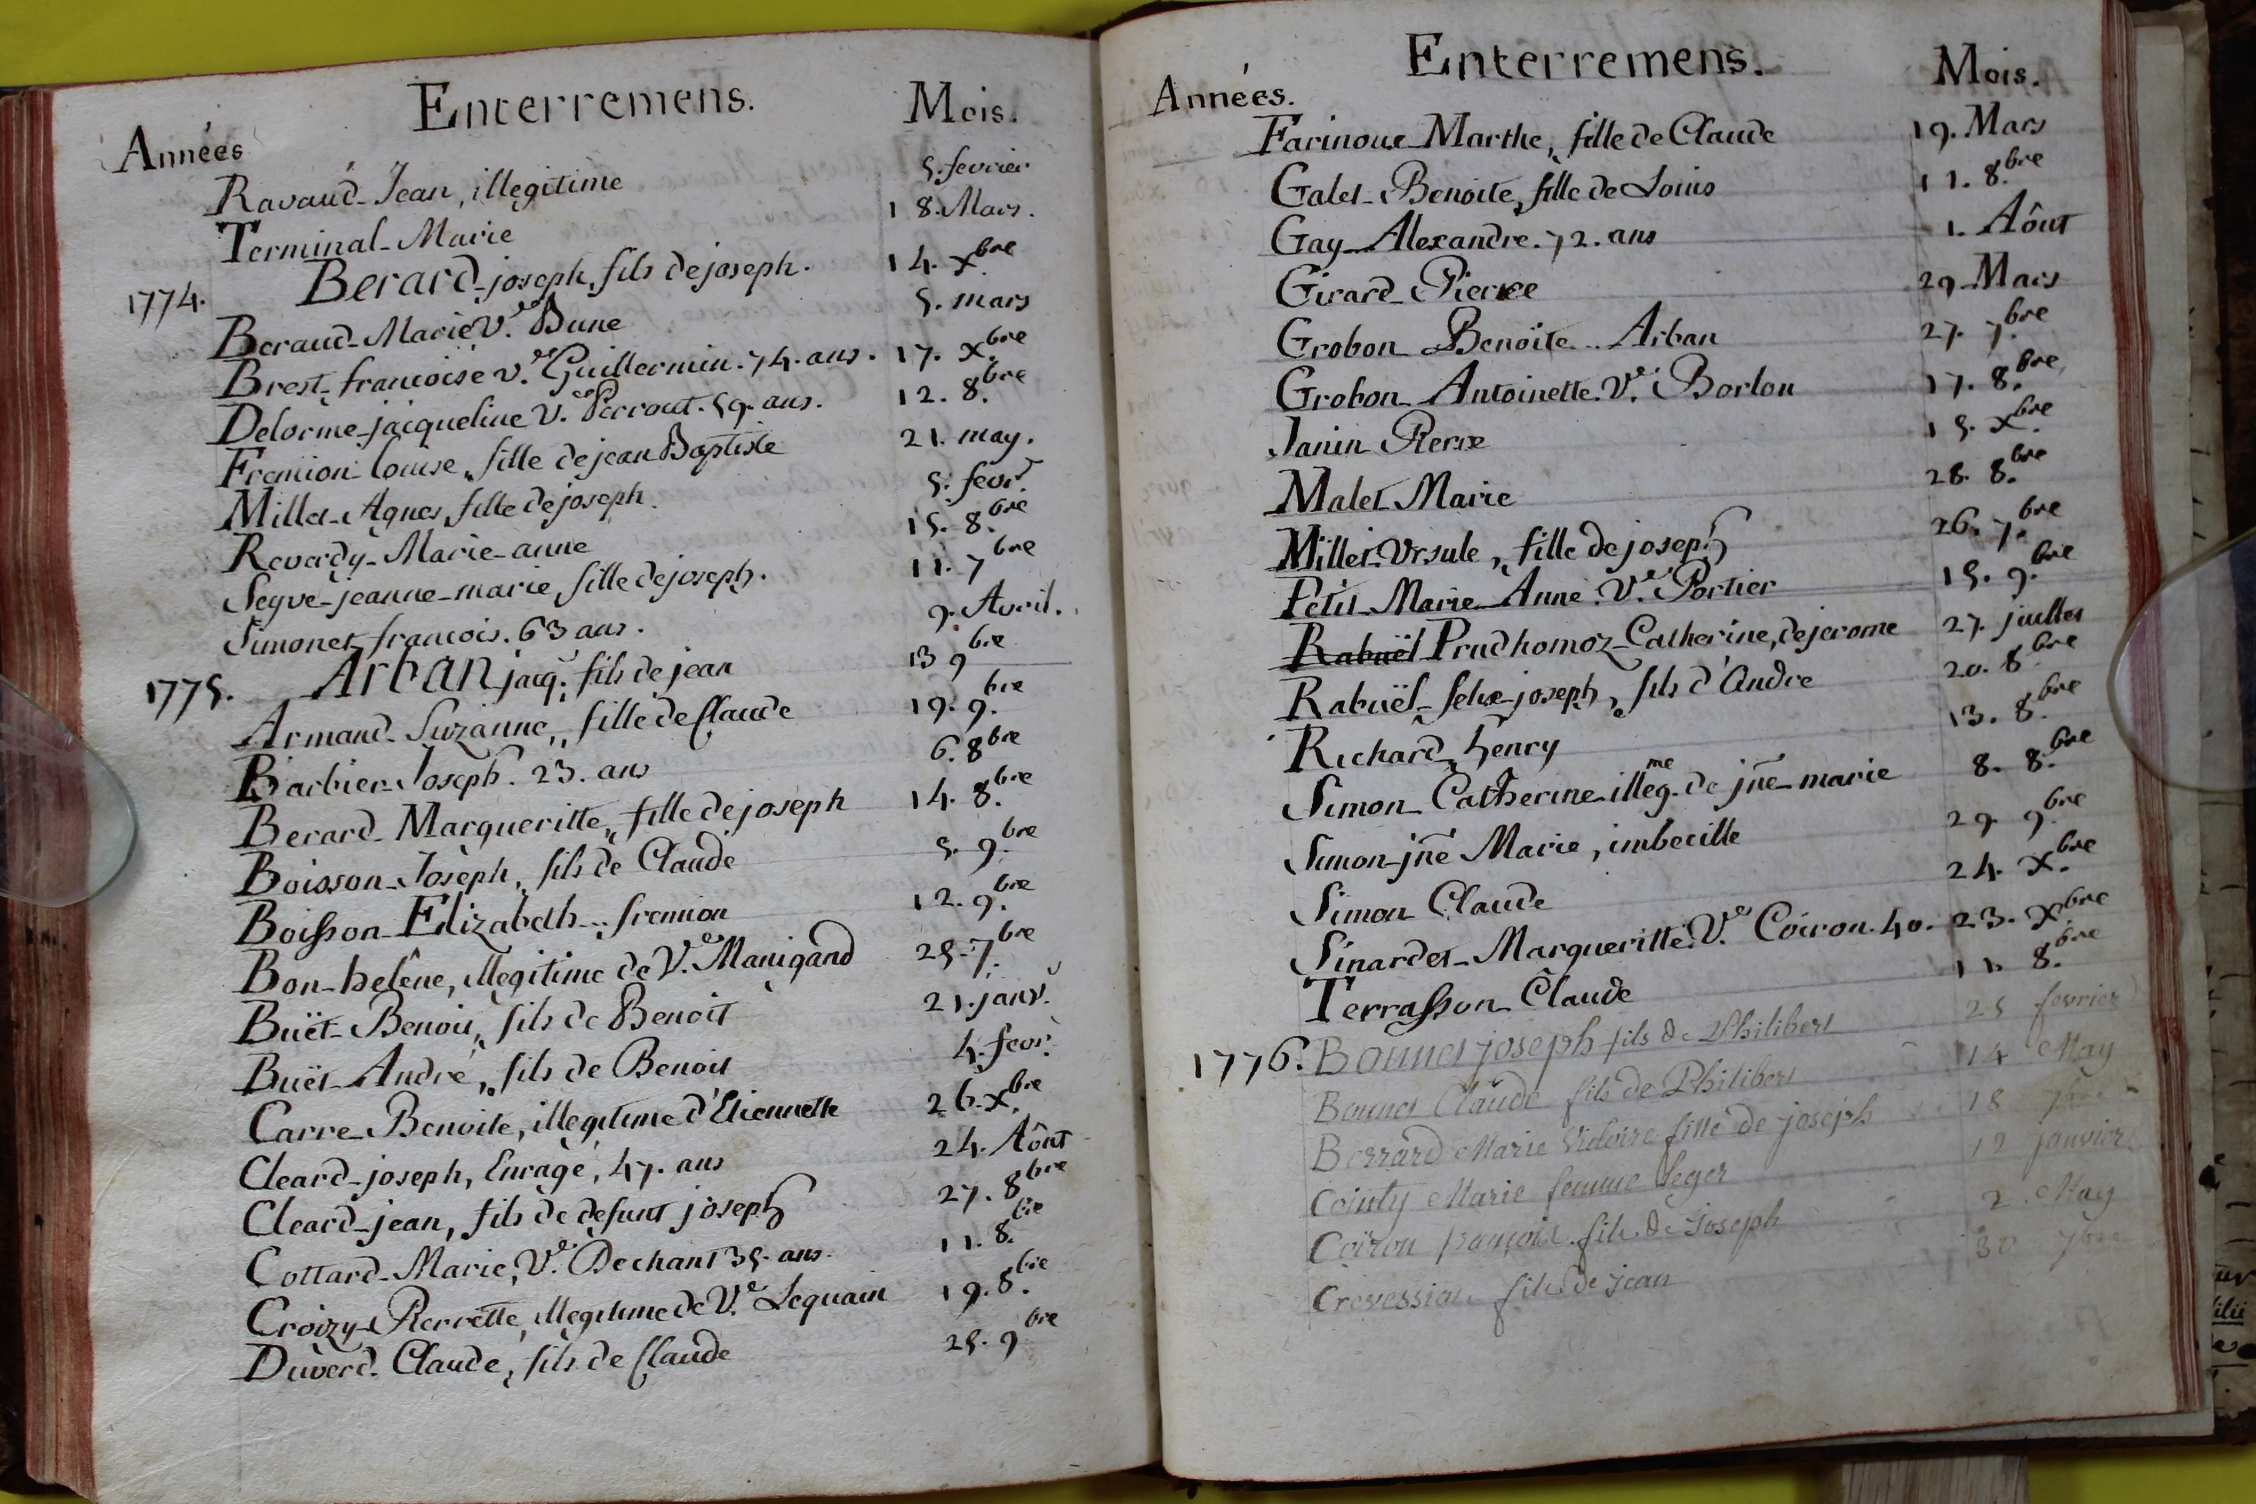 Enterremens.
Années Mois.
Ravaud-Jean, illegitime 5. fevrier
Terminal-Marie 18. Mars.
1774. Berard-joseph, fils de joseph. 14. Xbre
Beraud-Marie Ve. Dune 5. mars
Brest-francoise ve. Guillermin. 74. ans. 17. Xbre
Delorme-jacqueline Ve. Perrout. 59. ans. 12. 8bre
Fremion louise, fille de jean Baptiste 21. may.
Millet-Agnes, fille de joseph. 5. fevr.
Reverdy-Marie-anne 15. 8bre
Seyve-jeanne-marie, fille de joseph. 11. 7bre
Simonet francois. 63 ans. 9. Avril.
1775. Arban jacq. fils de jean 13 9bre
Armand-Suzanne, fille de Claude 19. 9bre
Barbier-Joseph. 23. ans 6. 8bre
Berard-Margueritte, fille de joseph 14. 8bre
Boisson-Joseph, fils de Claude 5. 9bre
Boisson-Elizabeth.. fremion 12. 9bre
Bon-helêne, illegitime de Ve. Manigand 25. 7bre
Buët-Benoit, fils de Benoit 21. janv.
Buët-André, fils de Benoit 4. fevr.
Carre-Benoite, illegitime d'Etiennette 26. Xbre
Cleard-joseph, Enragé, 47. ans 24. Aôut
Cleard-jean, fils de defunt joseph 27. 8bre
Cottard-Marie, Ve. Dechant 35. ans. 11. 8bre
Croizy-Pierrette, illegitime de Ve. Lequain 19. 8bre
Duverd. Claude, fils de Claude 25. 9bre
Enterremens.
Années. Mois.
Farinoux-Marthe, fille de Claude 19. Mars
Galet-Benoite, fille de Louis 11. 8bre
Gay-Alexandre. 72. ans 1. Aôut
Girard-Pierre 29. Mars
Grobon Benoite.. Arban 27. 7bre
Grobon-Antoinette. Ve. Borlon 17. 8bre
Janin Pierre 15. Xbre
Malet-Marie 28. 8bre
Millet-Ursule, fille de joseph 26. 7bre
Petit-Marie-Anne. Ve. Portier 15. 9bre
Rabuël Prudhomoz-Catherine, de jerome 27. juillet
Rabuël-felix-joseph, fils d'André 20. 8bre
Richard, henry 13. 8bre
Simon-Catherine illegme. de jne-marie 8. 8bre
Simon-jne Marie, imbecille 29. 9bre
Simon Claude 24. Xbre
Sinardet-Margueritte. Ve. Coiron. 40. 23. Xbre
Terrasson Claude 11. 8bre
1776. Bonnet joseph fils de Philibert 25 fevrier
Bonnet Claude fils de Philibert 14 May
Berrard Marie Victoire fille de joseph 18 7bre
Cointy Marie femme Leger 12 janvier
Coiron françois fils de Joseph 2. May
fils de jean 30 7bre